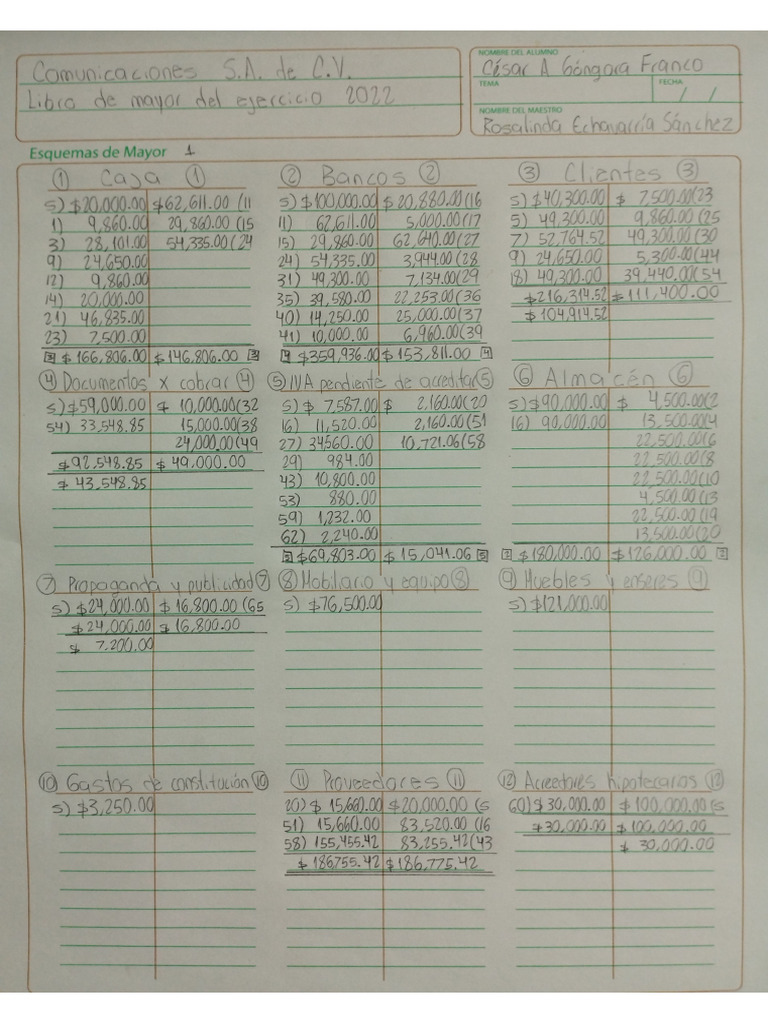 Comunicaciones S.A. de C.V.
Libro de mayor del ejercicio 2022
NOMBRE DEL ALUMNO
César A Góngora Franco
TEMA FECHA
/ /
NOMBRE DEL MAESTRO
Rosalinda Echavarría Sánchez
Esquemas de Mayor 1
① Caja ①
s) $20,000.00 $62,611.00 (11
1) 9,860.00 29,860.00 (15
3) 28,101.00 54,335.00 (24
9) 24,650.00
12) 9,860.00
14) 20,000.00
21) 46,835.00
23) 7,500.00
3 $166,806.00 $146,806.00 3
② Bancos ②
s) $100,000.00 $20,880.00 (16
11) 62,611.00 5,000.00 (17
15) 29,860.00 62,640.00 (27
24) 54,335.00 3,944.00 (28
31) 49,300.00 7,134.00 (29
35) 39,580.00 22,253.00 (36
40) 14,250.00 25,000.00 (37
41) 10,000.00 6,960.00 (39
4 $359,936.00 $153,811.00 4
③ Clientes ③
s) $40,300.00 $7,500.00 (23
5) 49,300.00 9,860.00 (25
7) 52,764.52 49,300.00 (30
9) 24,650.00 5,300.00 (44
18) 49,300.00 39,440.00 (54
$216,314.52 $111,400.00
$104,914.52
④ Documentos x cobrar ④
s) $59,000.00 $10,000.00 (32
54) 33,548.85 15,000.00 (38
24,000.00 (49
$92,548.85 $49,000.00
$43,548.85
⑤ IVA pendiente de acreditar ⑤
s) $7,587.00 $2,160.00 (20
16) 11,520.00 2,160.00 (51
27) 34,560.00 10,721.06 (58
29) 984.00
43) 10,800.00
53) 880.00
59) 1,232.00
62) 2,240.00
5 $69,803.00 $15,041.06 5
⑥ Almacén ⑥
s) $90,000.00 $4,500.00 (2
16) 90,000.00 13,500.00 (4
22,500.00 (6
22,500.00 (8
22,500.00 (10
4,500.00 (13
22,500.00 (19
13,500.00 (20
$180,000.00 $126,000.00
⑦ Propaganda y publicidad ⑦
s) $24,000.00 $16,800.00 (65
$24,000.00 $16,800.00
$7,200.00
⑧ Mobiliario y equipo ⑧
s) $76,500.00
⑨ Muebles y enseres ⑨
s) $121,000.00
⑩ Gastos de constitución ⑩
s) $3,250.00
⑪ Proveedores ⑪
20) $15,660.00 $20,000.00 (s
51) 15,660.00 83,520.00 (16
58) 155,455.42 83,255.42 (43
$186,755.42 $186,775.42
⑫ Acreedores hipotecarios ⑫
60) $30,000.00 $100,000.00 (s
$30,000.00 $100,000.00
$30,000.00